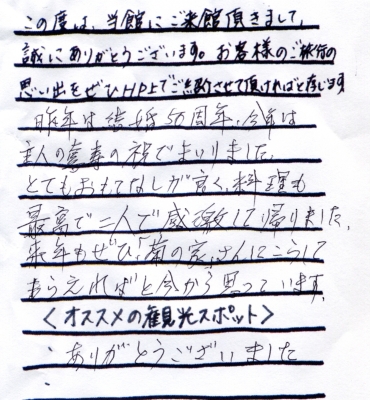 この度は、当館にご来館頂きまして、
誠にありがとうございます。お客様のご旅行の
思い出をぜひHP上でご紹介させて頂ければと存じます
昨年は結婚50周年、今年は
主人の喜寿の祝でまいりました。
とてもおもてなしが良く、料理も
最高で二人で感激して帰りました。
来年もぜひ「蘭の家」さんにこうして
もらえればと今から思っています。
<オススメの観光スポット>
・ありがとうございました
・